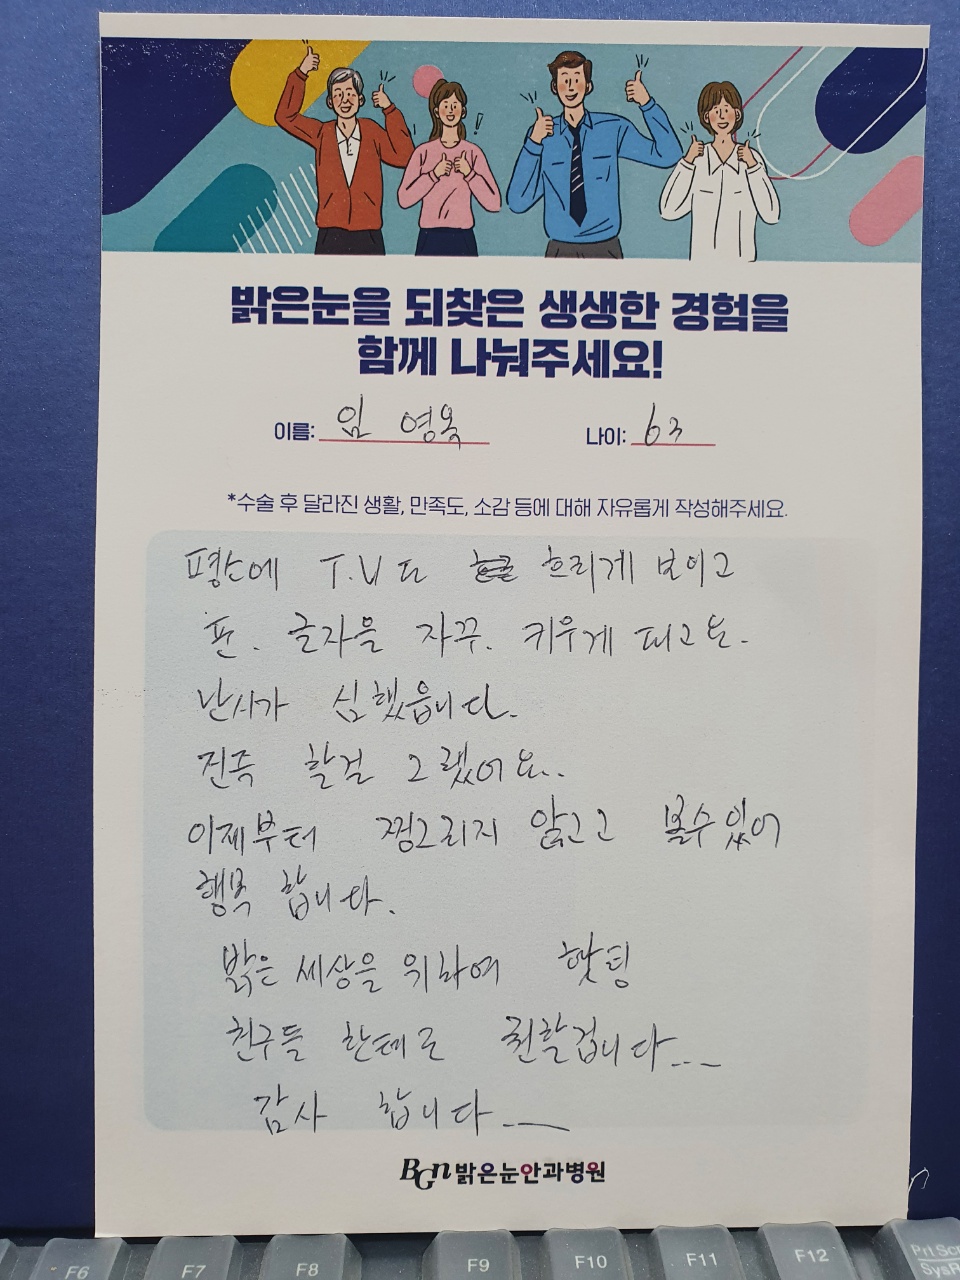 밝은눈을 되찾은 생생한 경험을
함께 나눠주세요!
이름: 임 영옥 나이: 63
*수술 후 달라진 생활, 만족도, 소감 등에 대해 자유롭게 작성해주세요.
평소에 T.V도 흐리게 보이고
폰. 글자을 자꾸. 키우게 되고요.
난시가 심했읍니다.
진즉 할걸 그랬어요..
이제부터 찡그리지 않고 볼수 있어
행복 합니다.
밝은 세상을 위하여 홧팅
친구들 한테도 권할겁니다...
감사 합니다...
BGN 밝은눈안과병원
F6 F7 F8 F9 F10 F11 F12 Prt Sc
SysR